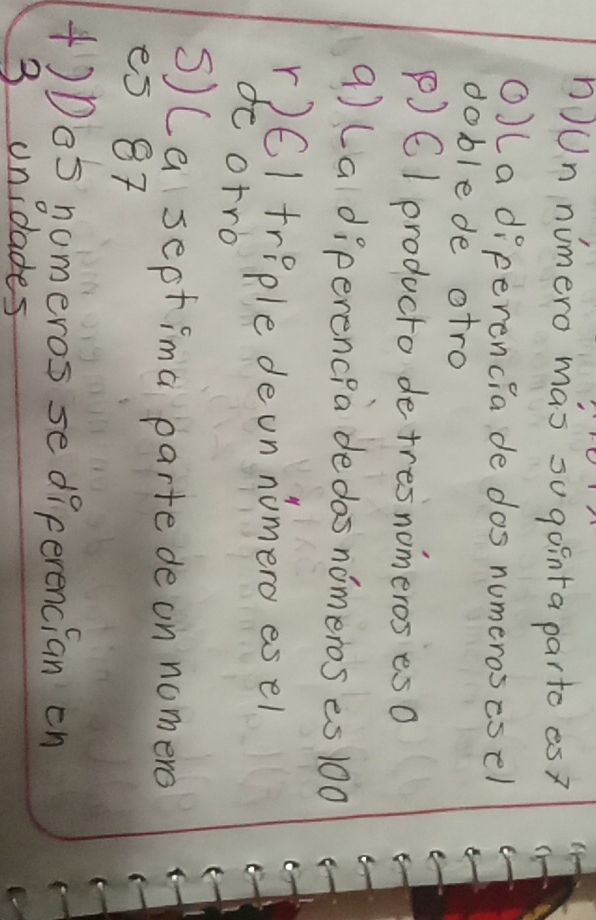 n) Un número mas su quinta parte es 7
o) La diferencia de dos numeros es el
doble de otro
p) El producto de tres números es 0
q) La diferencia de dos números es 100
r) El triple de un número es el
de otro
s) La septima parte de un numero
es 87
t) Dos numeros se diferencian en
3 unidades